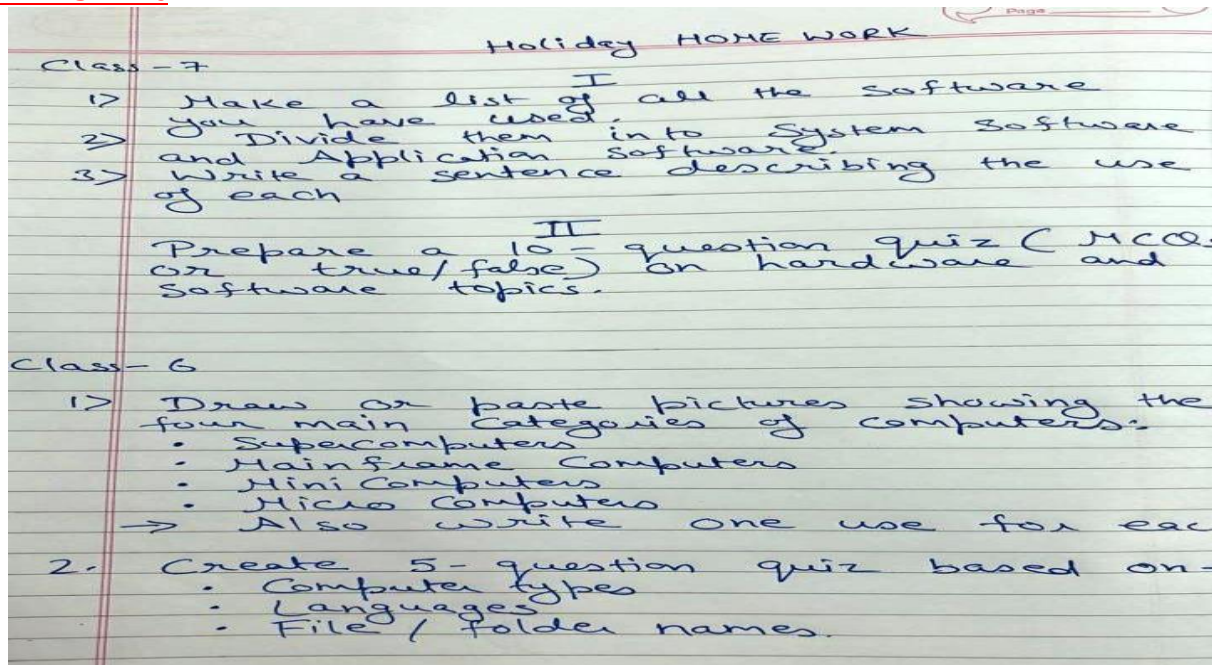 Page
Holiday HOME WORK
Class - 7
I
1> Make a list of all the software
you have used.
2> Divide them into System Software
and Application software.
3> Write a sentence describing the use
of each
II
Prepare a 10 - question quiz ( MCQ.
or true/false) on hardware and
Software topics.
Class - 6
1> Draw or paste pictures showing the
four main categories of computers:
• Supercomputers
• Mainframe Computers
• Mini Computers
• Micro Computers
→ Also write one use for eac
2. Create 5 - question quiz based on -
• Computer types
• Languages
• File / folder names.